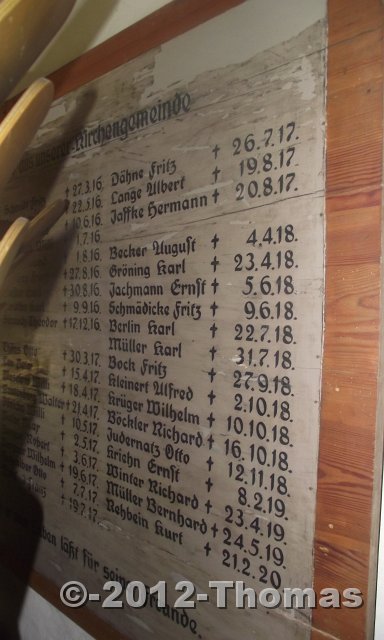 unserer Kirchengemeinde
† 27.3.16. Dähne Fritz † 26.7.17.
† 22.5.16. Lange Albert † 19.8.17.
† 10.6.16. Jaffke Hermann † 20.8.17.
1.7.16.
1.8.16. Becker August † 4.4.18.
† 27.8.16. Gröning Karl † 23.4.18.
† 30.8.16. Jachmann Ernst † 5.6.18.
† 9.9.16. Schmädicke Fritz † 9.6.18.
† 17.12.16. Berlin Karl † 22.7.18.
Otto Müller Karl † 31.7.18.
† 30.3.17. Bock Fritz † 27.9.18.
† 15.4.17. Kleinert Alfred † 2.10.18.
† 18.4.17. Krüger Wilhelm † 10.10.18.
Walter † 21.4.17. Böckler Richard † 16.10.18.
† 10.5.17. Judernatz Otto † 12.11.18.
† 2.5.17. Kriehn Ernst † 8.2.19.
† 3.6.17. Winter Richard † 23.4.19.
Wilhelm † 19.6.17. Müller Bernhard † 24.5.19.
Otto † 7.7.17. Rehbein Kurt † 21.2.20
† 19.7.17.
läßt für seine Freunde.
©-2012-Thomas